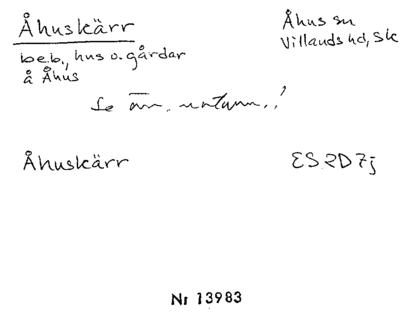 Åhuskärr
Åhus sn
Villands hd, Sk
beb., hus o. gårdar
å Åhus
Se
Åhuskärr
ES 2D7j
Nr 13983